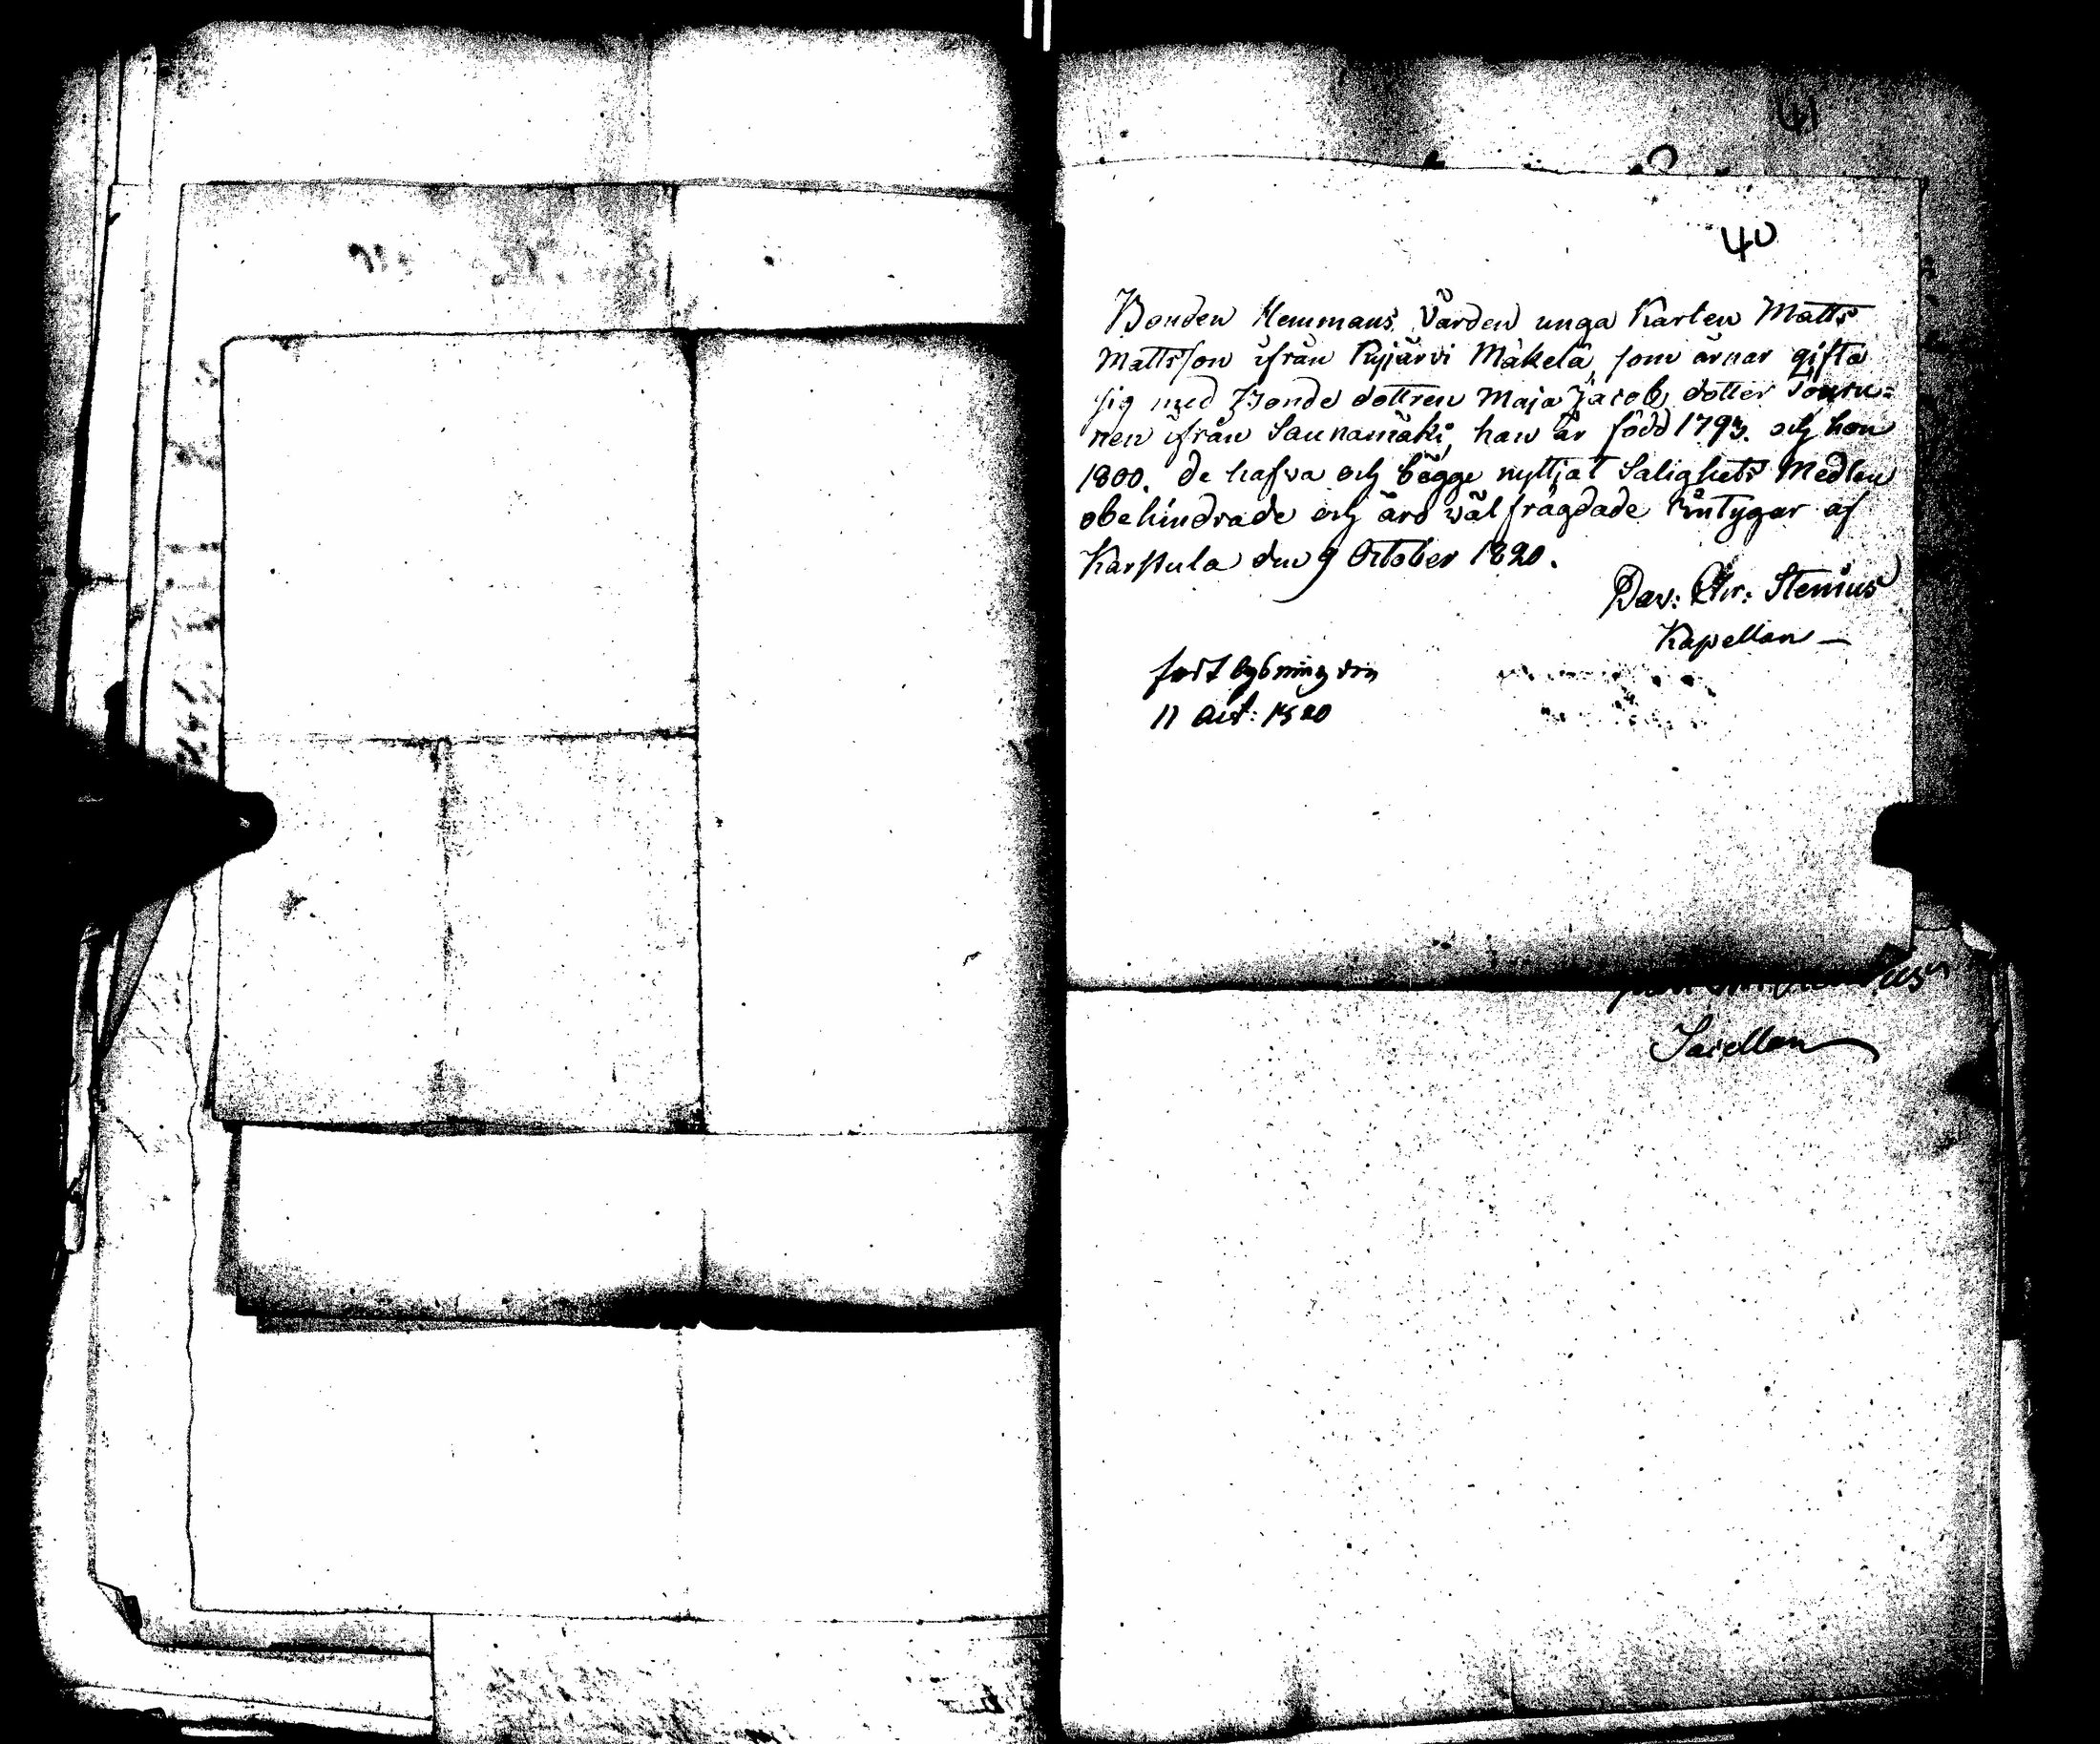 41
40
Bonden Hemmans Värden unga Karlen Matts
Mattsson ifrån Kyjärvi Mäkelä, som ärnar gifta
sig med Bonde dottren Maja Jacobs dotter
nen ifrån Saunamäki, han är född 1793. och hon
1800. de hafva och bägge nyttjat Salighets Medlen
obehindrade och äro wäl frägdade intygar af
Karstula den 9 October 1820.
Dav: Chr: Stenius
Kapellan
11 Oct: 1820